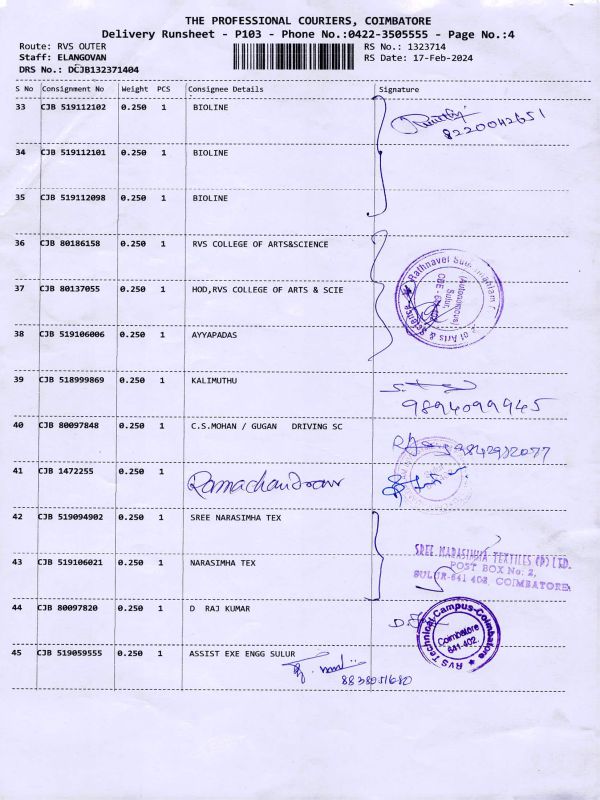 THE PROFESSIONAL COURIERS, COIMBATORE
Delivery Runsheet - P103 - Phone No.:0422-3505555 - Page No.:4
Route: RVS OUTER RS No.: 1323714
Staff: ELANGOVAN RS Date: 17-Feb-2024
DRS No.: DCJB132371404
S No Consignment No Weight PCS Consignee Details Signature
33 CJB 519112102 0.250 1 BIOLINE
8220042651
34 CJB 519112101 0.250 1 BIOLINE
35 CJB 519112098 0.250 1 BIOLINE
36 CJB 80186158 0.250 1 RVS COLLEGE OF ARTS&SCIENCE
37 CJB 80137055 0.250 1 HOD,RVS COLLEGE OF ARTS & SCIE
(Autonomous)
Sulur,
38 CJB 519106006 0.250 1 AYYAPADAS
39 CJB 518999869 0.250 1 KALIMUTHU
9894099945
40 CJB 80097848 0.250 1 C.S.MOHAN / GUGAN DRIVING SC
9842982077
41 CJB 1472255 0.250 1 Ramachandran
42 CJB 519094902 0.250 1 SREE NARASIMHA TEX
43 CJB 519106021 0.250 1 NARASIMHA TEX
SREE NARASIMHA TEXTILES (P) LTD.
POST BOX No: 2,
SULUR-641 402, COIMBATORE
44 CJB 80097820 0.250 1 D RAJ KUMAR
RVS Technical Campus-Coimbatore
Coimbatore
641 402.
45 CJB 519059555 0.250 1 ASSIST EXE ENGG SULUR
8838051680